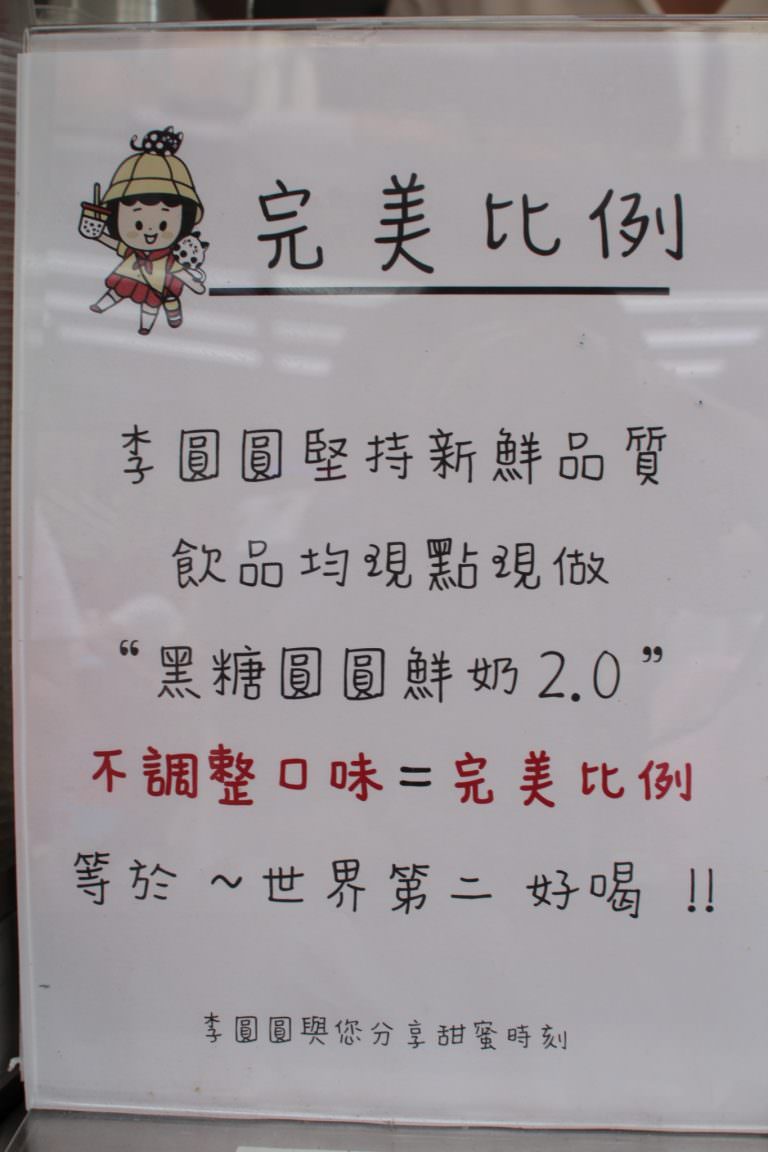 完美比例
李圓圓堅持新鮮品質
飲品均現點現做
“黑糖圓圓鮮奶2.0”
不調整口味=完美比例
等於 ~世界第二 好喝 !!
李圓圓與您分享甜蜜時刻